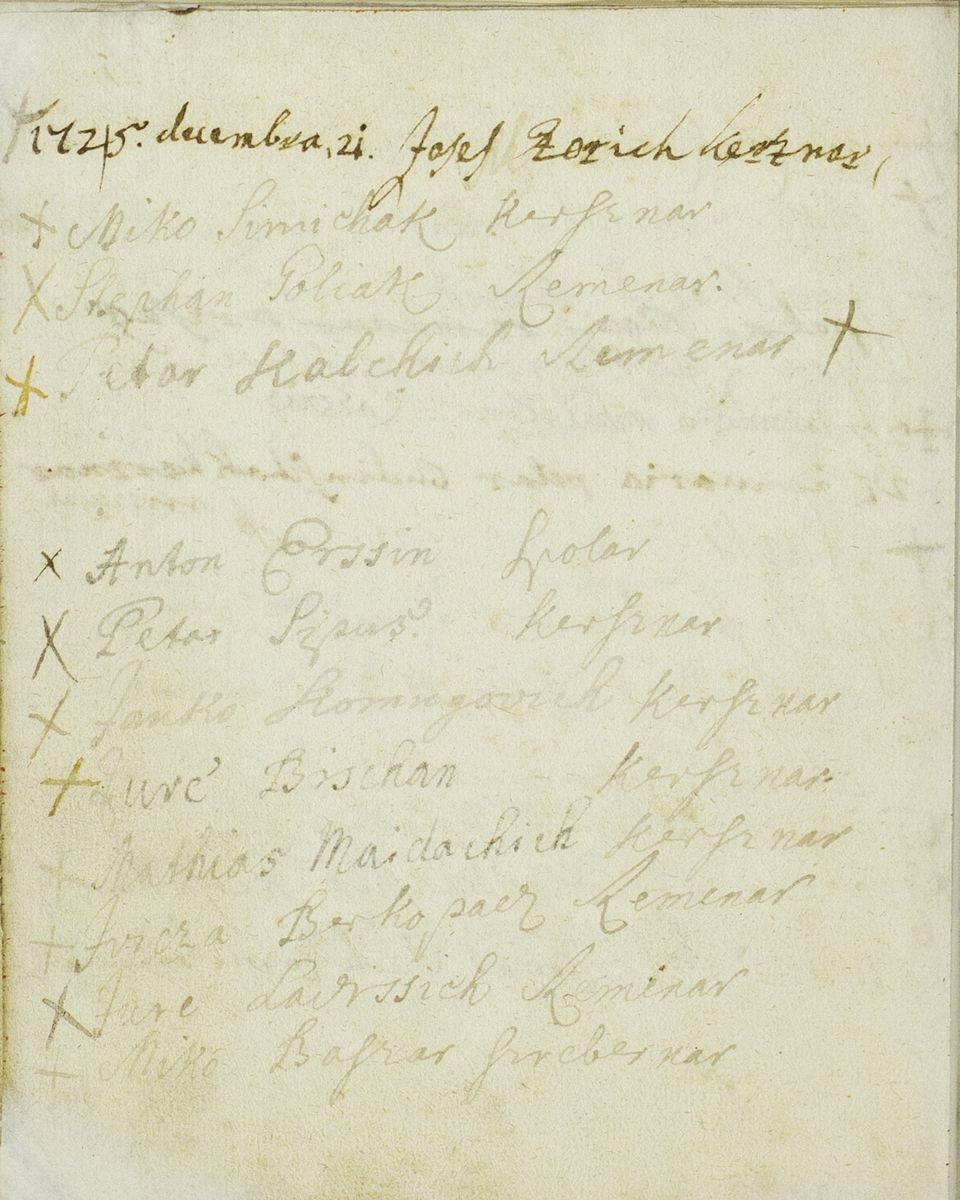 1725. decembra, 21. Josef Zorich kerznar,
+ Miko Simichak kersznar
X Stephan Poliak Remenar.
+ Petar Kalchich Remenar +
x Anton Erssin spolar
X Petar Sipus kersznar
X Janko kersznar
+ Jure Bischan - kersznar
+ Mathias Maidachich kersznar
+ Ivicza Berkopacz Remenar
X Jure Lavrssich Remenar
+ Miko Boszar szrebernar